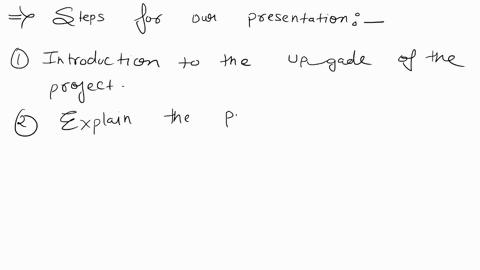 ⇒ Steps for our presentation:—
① Introduction to the upgade of the
project.
② Explain the p